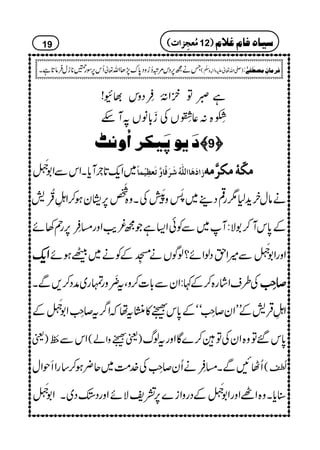 19 سیاہ فام غلام (12 مُعجِزات)
فرمانِ مصطَفٰے (صلی اللہ تعالیٰ علیہ واٰلہ وسلم) جس نے مجھ پر دس مرتبہ دُرُود پاک پڑھا اللہ تعالیٰ اُس پر سو رحمتیں نازل فرماتا ہے۔
ہے صبر تو خزانۂ فِردوس بھائیو!
شِکوہ نہ عاشِقوں کی زَبانوں پہ آسکے
﴿9﴾ دَیو پیکر اُونٹ
مکّۂ مکرَّمہ زَادَھَا اللہُ شَرَفًاوَّ تَعظِیْماً میں ایک تاجر آیا۔ اس سے ابوجَہل
نے مال خرید لیا مگر رقم دینے میں پَس وپیش کی۔ وہ شخص پریشان ہو کر اہلِ قُریش
کے پاس آکر بولا: آپ میں سے کوئی ایسا ہے جو مجھ غریب اور مسافر پر رحم کھائے
اور ابوجَہل سے میرا حق دلوائے؟ لوگوں نے مسجد کے کونے میں بیٹھے ہوئے ایک
صاحِب کی طرف اشارہ کرکے کہا: ان سے بات کرو، یہ ضَرور تمہاری مدد کریں گے۔
اہلِ قُریش کے ’’ان صاحِب‘‘ کے پاس بھیجنے کا منشا یہ تھا کہ اگر یہ صاحِب ابوجَہل کے
پاس گئے تو وہ ان کی توہین کرے گا اور یہ لوگ (یعنی بھیجنے والے) اس سے حَظ (یعنی
لُطف) اُٹھائیں گے۔ مسافِر نے اُن صاحِب کی خدمت میں حاضِر ہو کر سارا اَحوال
سنایا۔ وہ اٹھے اور ابوجَہل کے دروازے پر تشریف لائے اور دستک دی۔ ابوجَہل